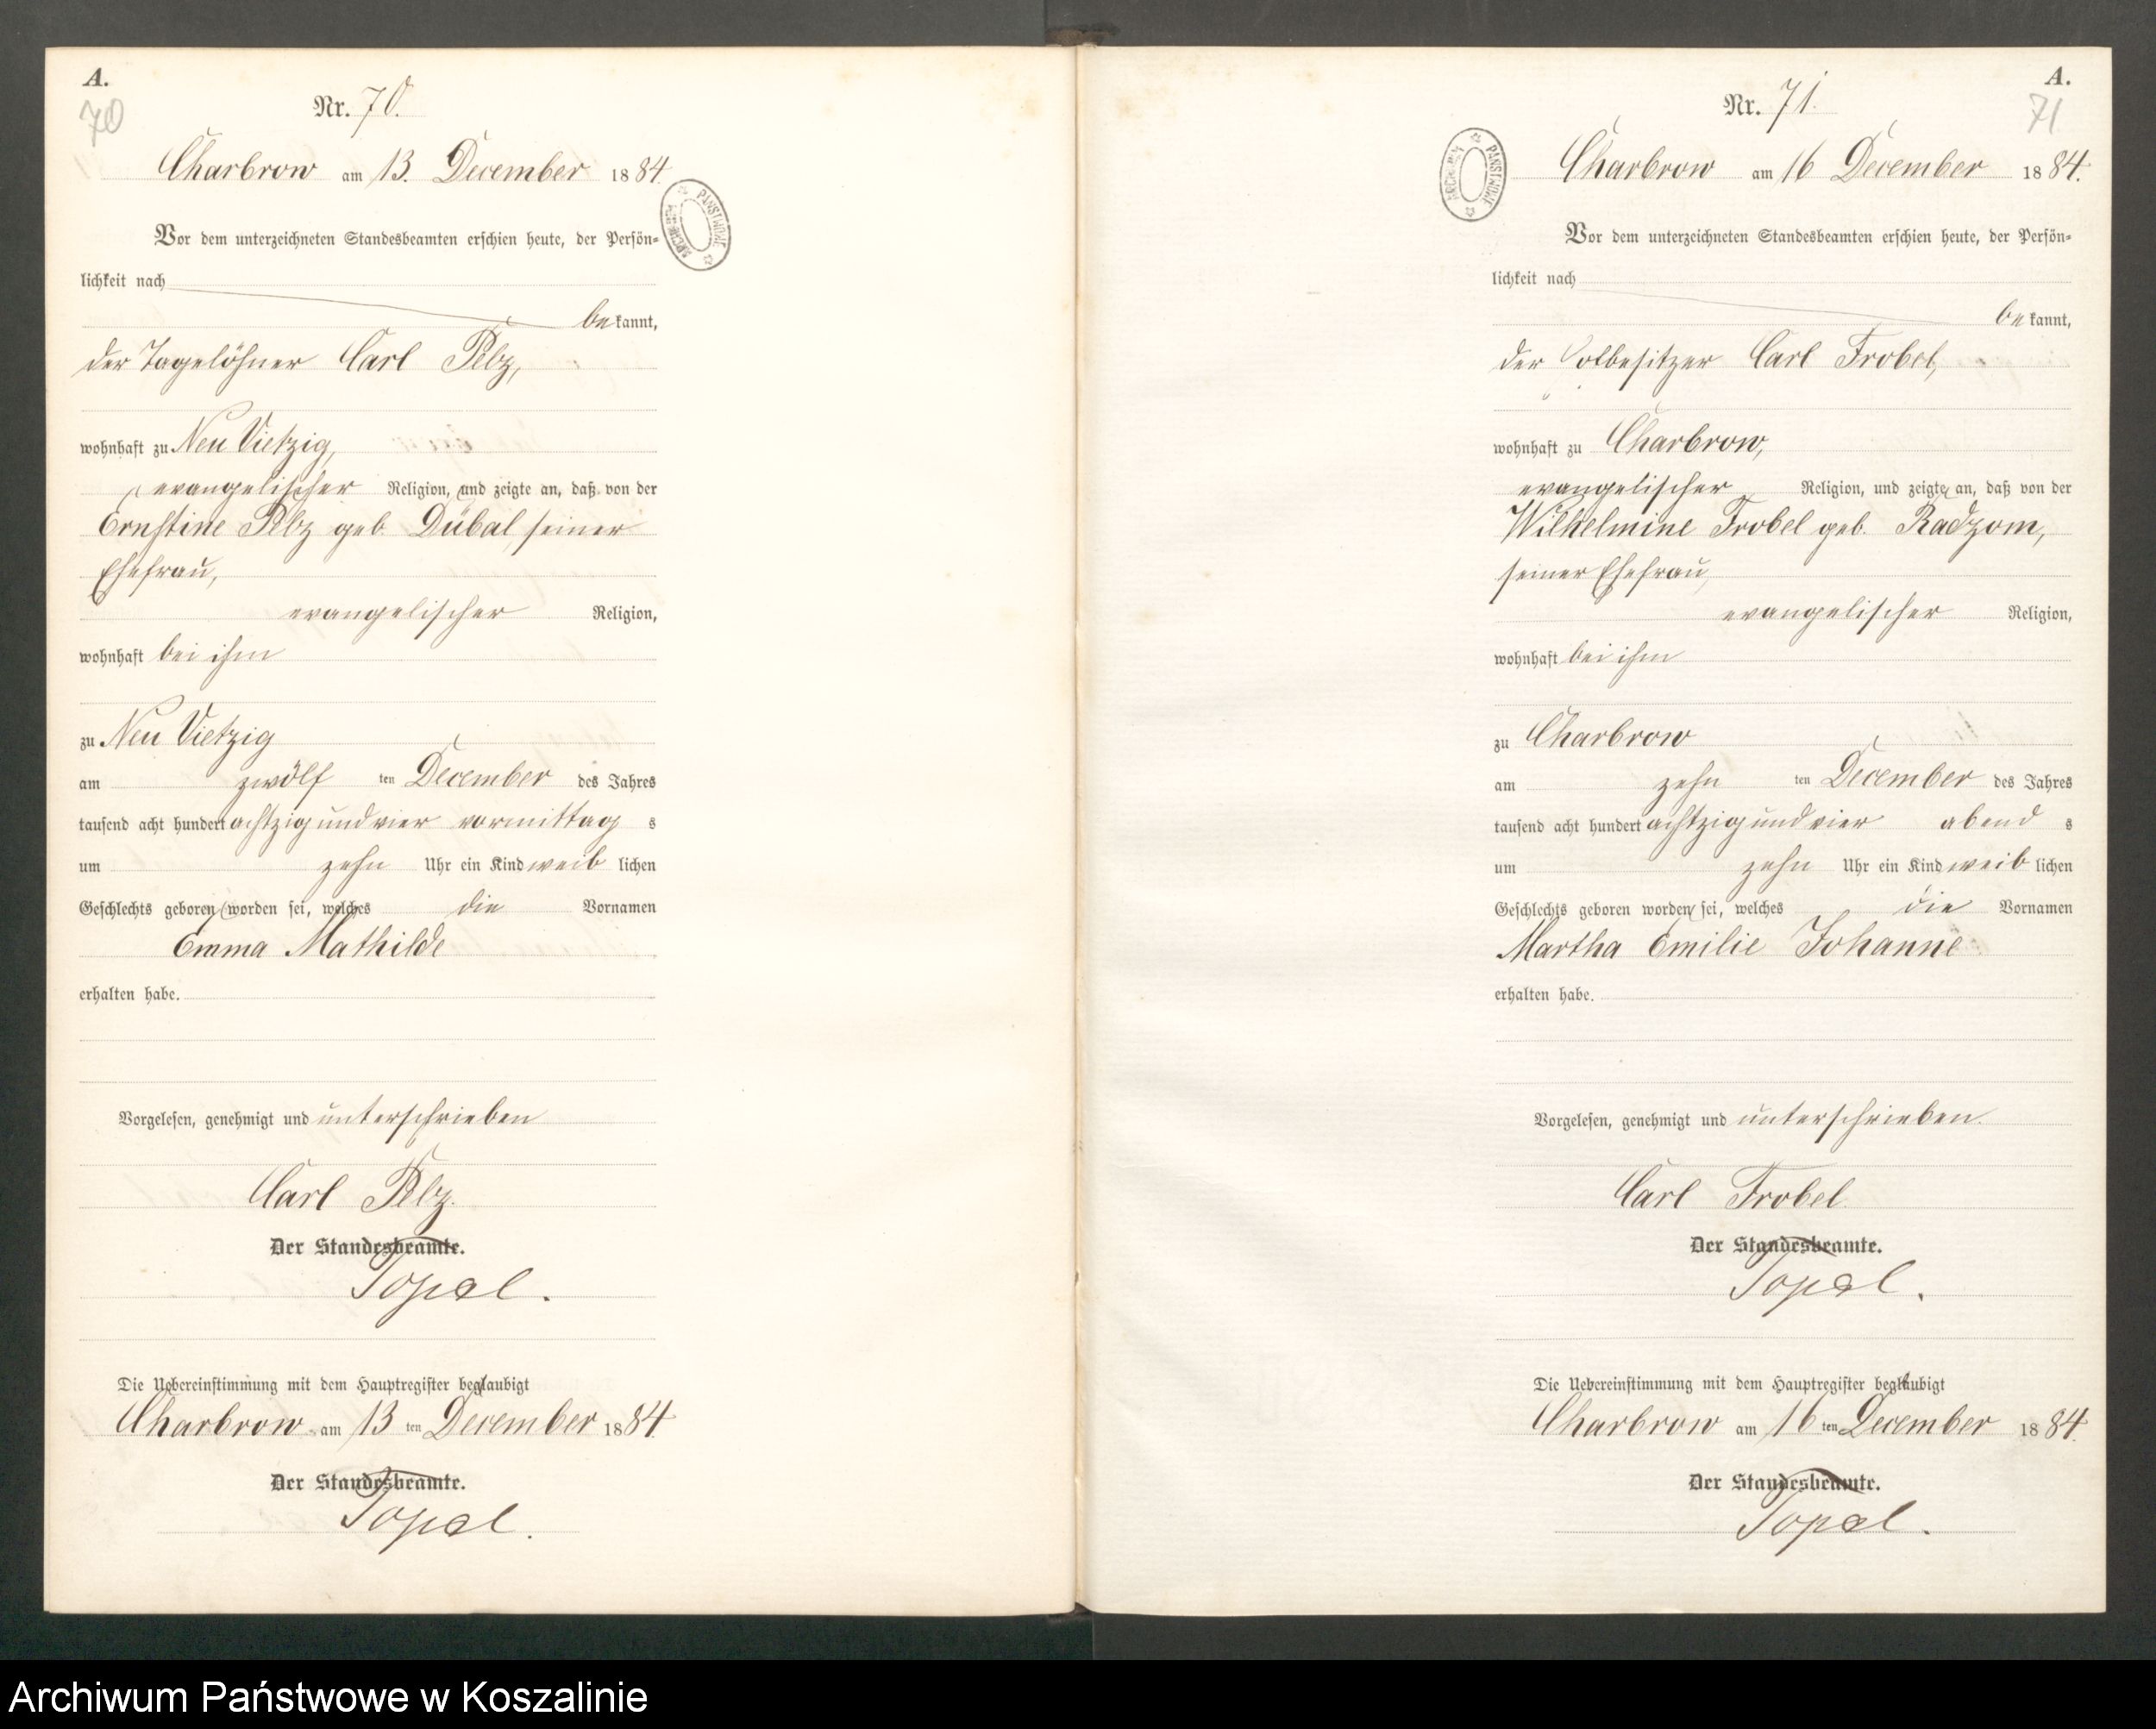 A.
70
Nr. 70.
Charbrow am 13. December 1884.
Vor dem unterzeichneten Standesbeamten erschien heute, der Persön-
lichkeit nach
bekannt,
der Tagelöhner Carl Pelz,
wohnhaft zu Neu Vietzig,
evangelischer Religion, und zeigte an, daß von der
Ernstine Pelz geb. Dübal, seiner
Ehefrau,
evangelischer Religion,
wohnhaft bei ihm
zu Neu Vietzig
am zwölf ten December des Jahres
tausend acht hundert achtzig und vier vormittag s
um zehn Uhr ein Kind weib lichen
Geschlechts geboren worden sei, welches die Vornamen
Emma Mathilde
erhalten habe.
Vorgelesen, genehmigt und unterschrieben
Carl Pelz.
Der Standesbeamte.
Topel.
Die Uebereinstimmung mit dem Hauptregister beglaubigt
Charbrow am 13 ten December 1884.
Der Standesbeamte.
Topel.
ARCHIWUM PAŃSTWOWE
A.
71
Nr. 71.
Charbrow am 16 December 1884.
ARCHIWUM PAŃSTWOWE
Vor dem unterzeichneten Standesbeamten erschien heute, der Persön-
lichkeit nach
bekannt,
der Carl Frobel,
wohnhaft zu Charbrow,
evangelischer Religion, und zeigte an, daß von der
Wilhelmine Frobel geb. Radzom,
seiner Ehefrau,
evangelischer Religion,
wohnhaft bei ihm
zu Charbrow
am zehn ten December des Jahres
tausend acht hundert achtzig und vier abend s
um zehn Uhr ein Kind weib lichen
Geschlechts geboren worden sei, welches die Vornamen
Martha Emilie Johanne
erhalten habe.
Vorgelesen, genehmigt und unterschrieben.
Carl Frobel.
Der Standesbeamte.
Topel.
Die Uebereinstimmung mit dem Hauptregister beglaubigt
Charbrow am 16 ten December 1884.
Der Standesbeamte.
Topel.
Archiwum Państwowe w Koszalinie